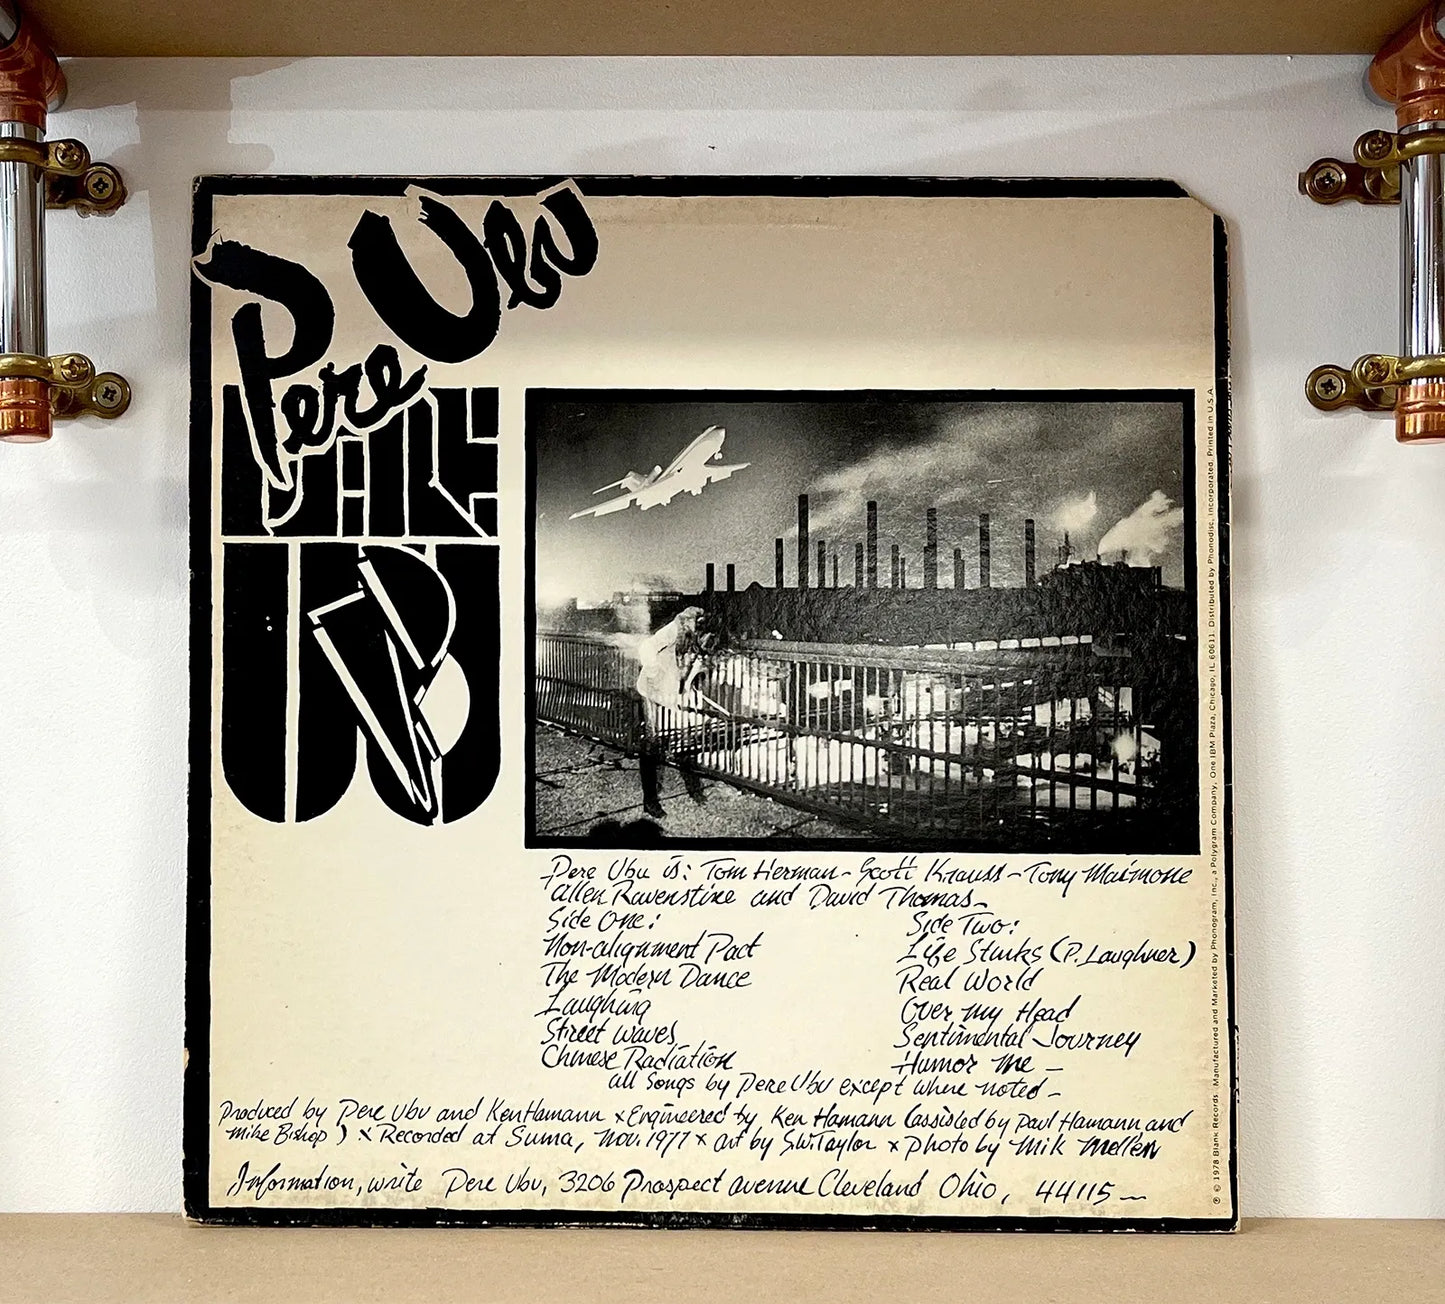 Pere Ubu
Pere Ubu is: Tom Herman - Scott Krauss - Tony Maimone
Allen Ravenstine and David Thomas -
Side One:
Non-alignment Pact
The Modern Dance
Laughing
Street Waves
Chinese Radiation
Side Two:
Life Stinks (P. Laughner)
Real World
Over my Head
Sentimental Journey
Humor me -
all songs by Pere Ubu except where noted -
Produced by Pere Ubu and Ken Hamann x Engineered by Ken Hamann (assisted by Paul Hamann and
Mike Bishop) x Recorded at Suma, Nov. 1977 x art by S.W. Taylor x Photo by Mik Mellen
Information, write Pere Ubu, 3206 Prospect avenue Cleveland Ohio, 44115 -
℗ © 1978 Blank Records. Manufactured and Marketed by Phonogram, Inc., a Polygram Company, One IBM Plaza, Chicago, IL 60611. Distributed by Phonodisc, Incorporated. Printed in U.S.A.